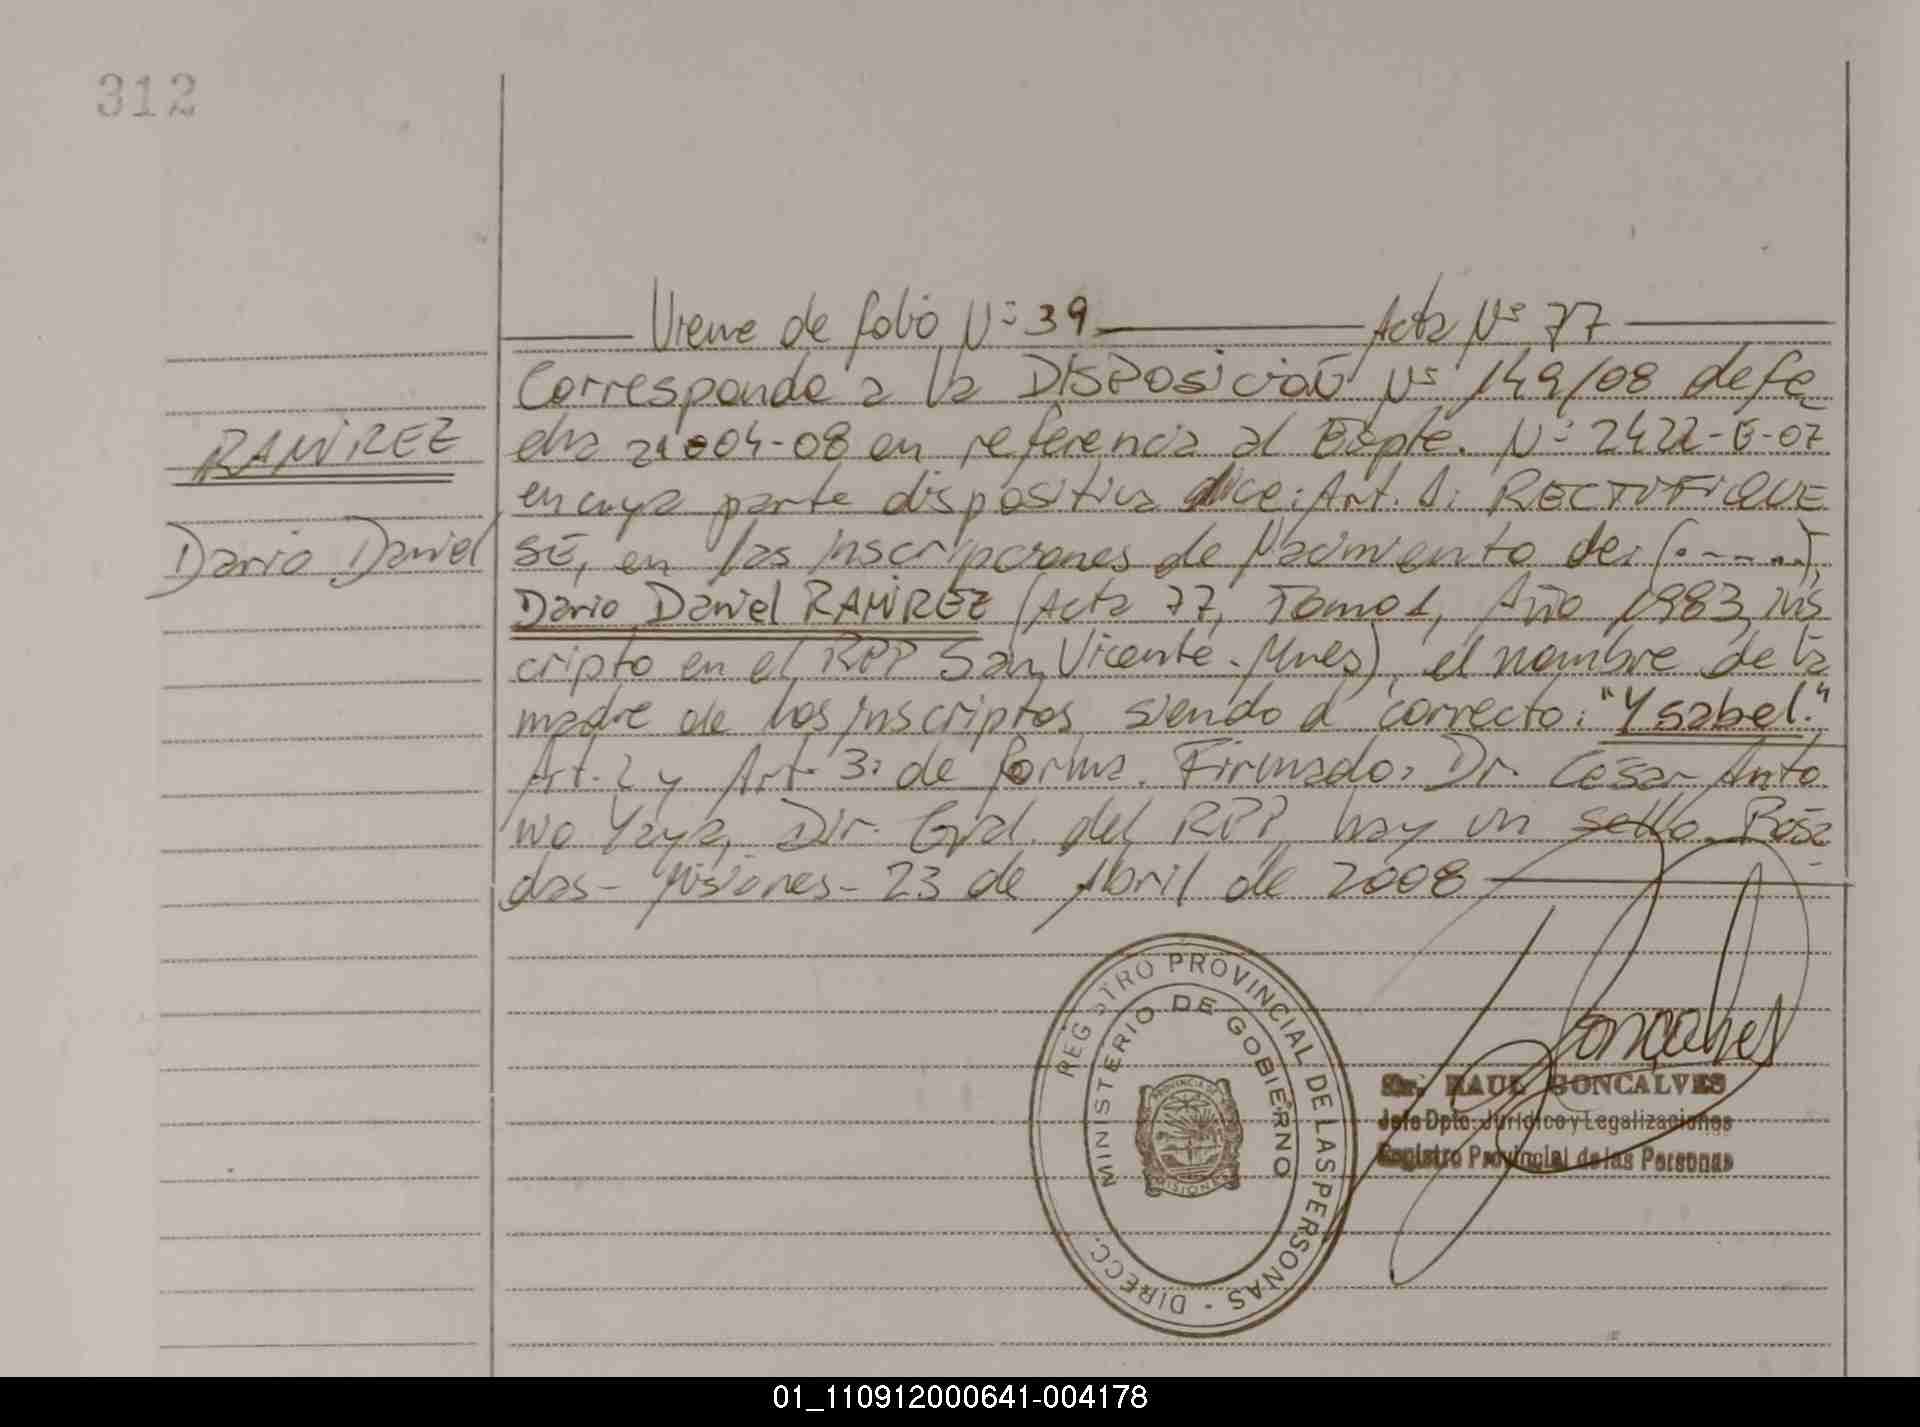 312
Viene de folio Nº 39 Acta Nº 77
Corresponde a la DISPOSICIÓN Nº 149/08 de fe
cha 21-04-08 en referencia al Expte. Nº 2422-E-07
en cuya parte dispositiva dice: Art. 1: RECTIFIQUE
SE, en las inscripciones de Nacimiento de: (......),
Dario Daniel RAMIREZ (Acta 77, Tomo 1, Año 1983, ins
cripto en el RPP San Vicente - Mnes), el nombre de la
madre de los inscriptos siendo el correcto: "Ysabel."
Art. 2 y Art. 3: de forma. Firmado: Dr. Cesar Anto
nio Yaya, Dir. Gral. del RPP, hay un sello. Posa
das - Misiones - 23 de Abril de 2008
RAMIREZ
Dario Daniel
DIRECC. REGISTRO PROVINCIAL DE LAS PERSONAS -
MINISTERIO DE GOBIERNO
PROVINCIA DE
MISIONES
Goncalves
Sr. RAUL GONCALVES
Jefe Dpto. Jurídico y Legalizaciones
Registro Provincial de las Personas
01_110912000641-004178